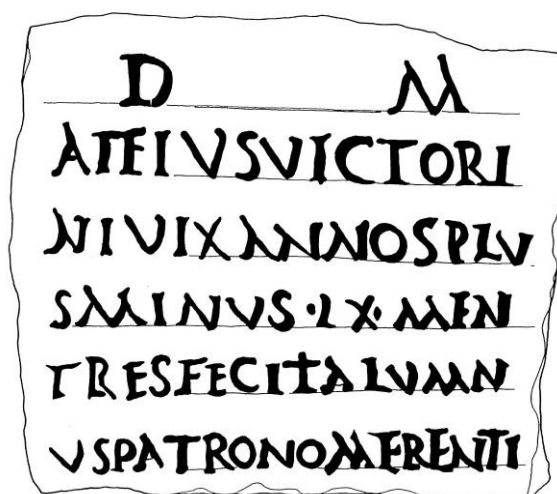 D M
ATTEIVSVICTORI
NIVIXANNOSPLV
SMINVS·LX·MEN
TRESFECITALVMN
VSPATRONOMERENTI